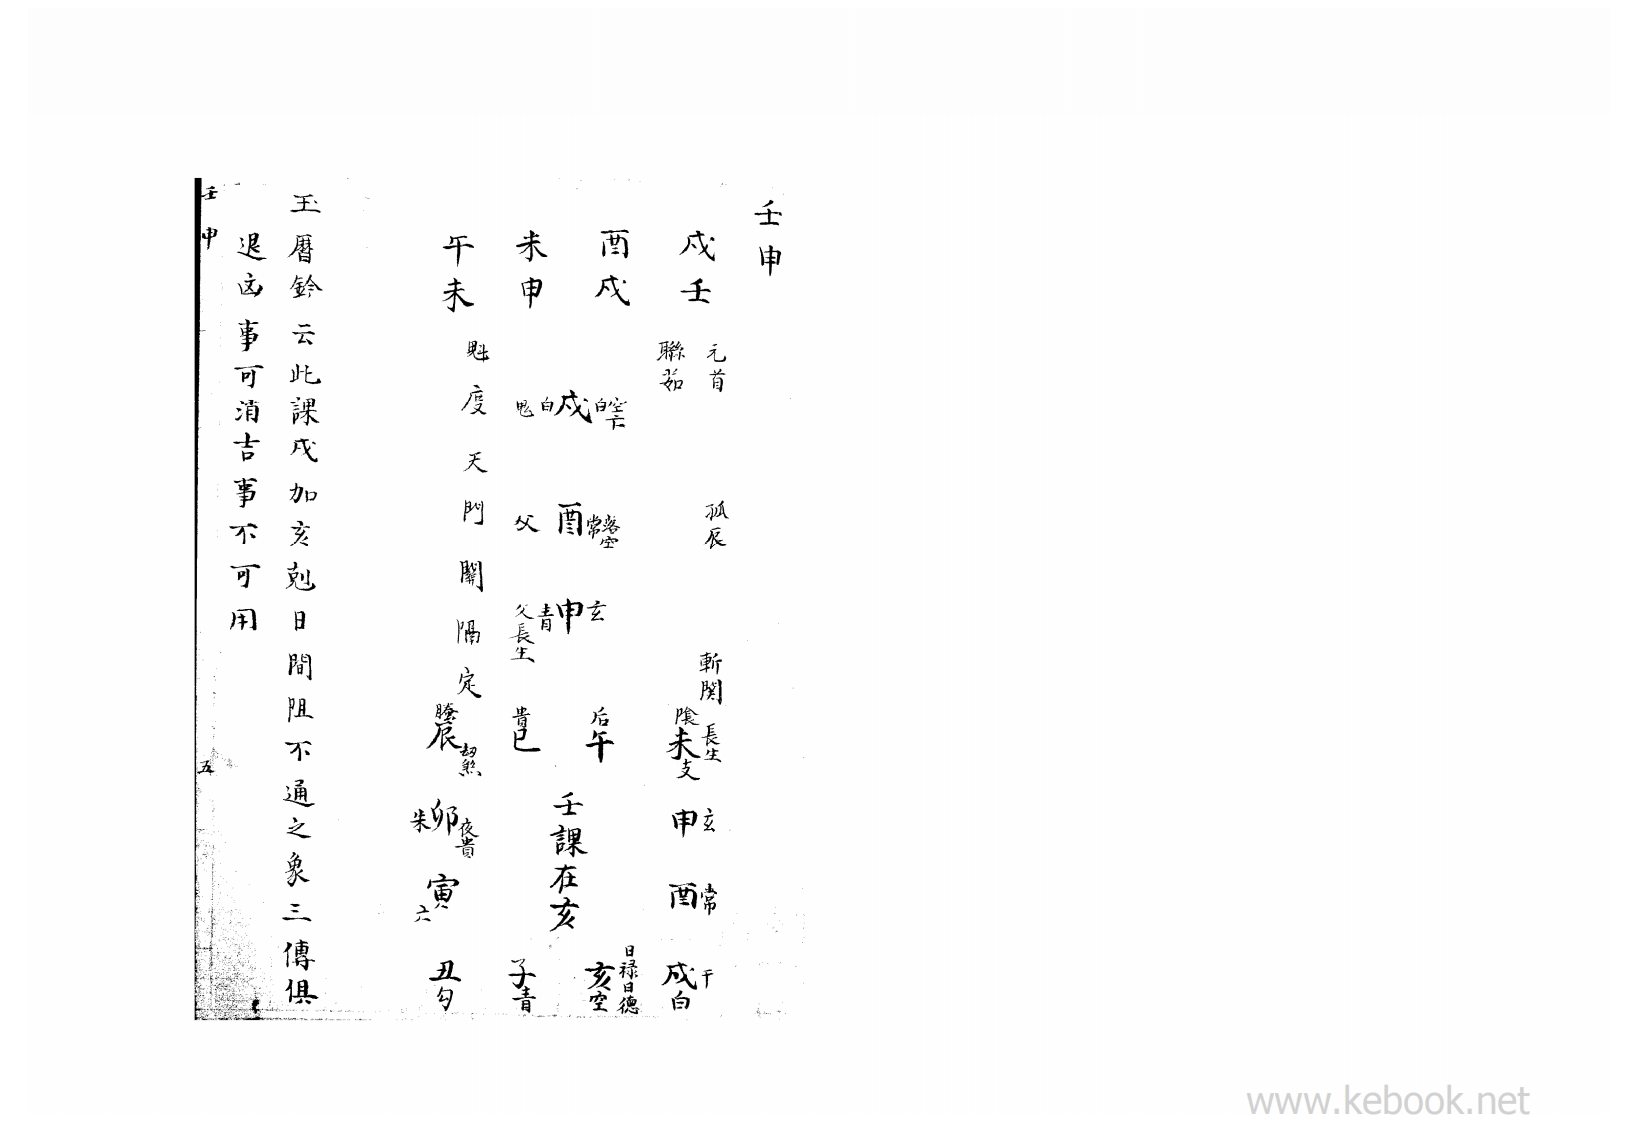 壬申
戌壬
元首
聯茹
孤辰
斬関
酉戌
未申
午未
白戌白空下
鬼
父酉常落空
父長生青申玄
魁度天門關隔定
陰未支長生
申玄
酉常
戌白干
后午
壬課在亥
亥空日祿日德
貴巳
子青
辰劫煞
朱卯夜貴
寅六
丑勾
玉曆鈐云此課戌加亥剋日間阻不通之象三傳俱
退凶事可消吉事不可用
壬申
五
www.kebook.net